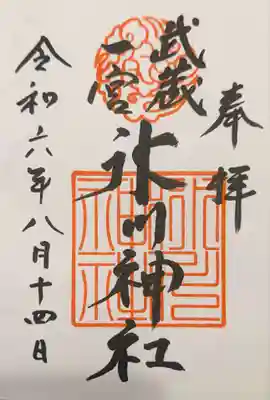 奉拝
武蔵
一宮
氷川神社
令和六年八月十四日